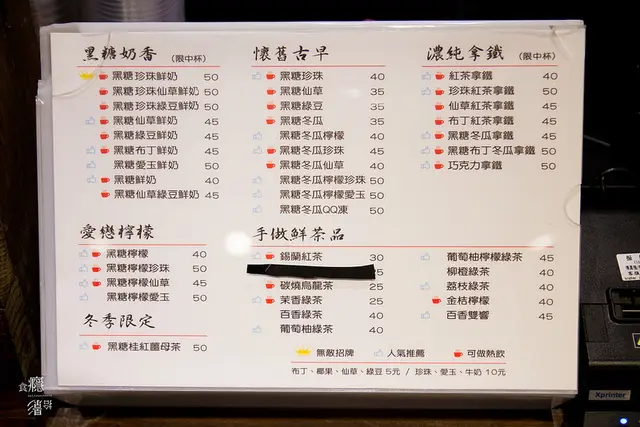 黑糖奶香 (限中杯)
黑糖珍珠鮮奶 50
黑糖珍珠仙草鮮奶 50
黑糖珍珠綠豆鮮奶 50
黑糖仙草鮮奶 45
黑糖綠豆鮮奶 45
黑糖布丁鮮奶 45
黑糖愛玉鮮奶 50
黑糖鮮奶 40
黑糖仙草綠豆鮮奶 45
愛戀檸檬
黑糖檸檬 40
黑糖檸檬珍珠 50
黑糖檸檬仙草 45
黑糖檸檬愛玉 50
冬季限定
黑糖桂紅薑母茶 50
懷舊古早
黑糖珍珠 40
黑糖仙草 35
黑糖綠豆 35
黑糖冬瓜 35
黑糖冬瓜檸檬 40
黑糖冬瓜珍珠 45
黑糖冬瓜仙草 40
黑糖冬瓜檸檬珍珠 50
黑糖冬瓜檸檬愛玉 50
黑糖冬瓜QQ凍 50
濃純拿鐵 (限中杯)
紅茶拿鐵 40
珍珠紅茶拿鐵 50
仙草紅茶拿鐵 45
布丁紅茶拿鐵 45
黑糖冬瓜拿鐵 45
黑糖布丁冬瓜拿鐵 50
巧克力拿鐵 50
手做鮮茶品
錫蘭紅茶 30
碳燒烏龍茶 25
茉香綠茶 25
百香綠茶 40
葡萄柚綠茶 40
葡萄柚檸檬綠茶 45
柳橙綠茶 40
荔枝綠茶 40
金桔檸檬 40
百香雙響 45
無敵招牌 人氣推薦 可做熱飲
布丁、椰果、仙草、綠豆 5元 / 珍珠、愛玉、牛奶 10元
Xprinter